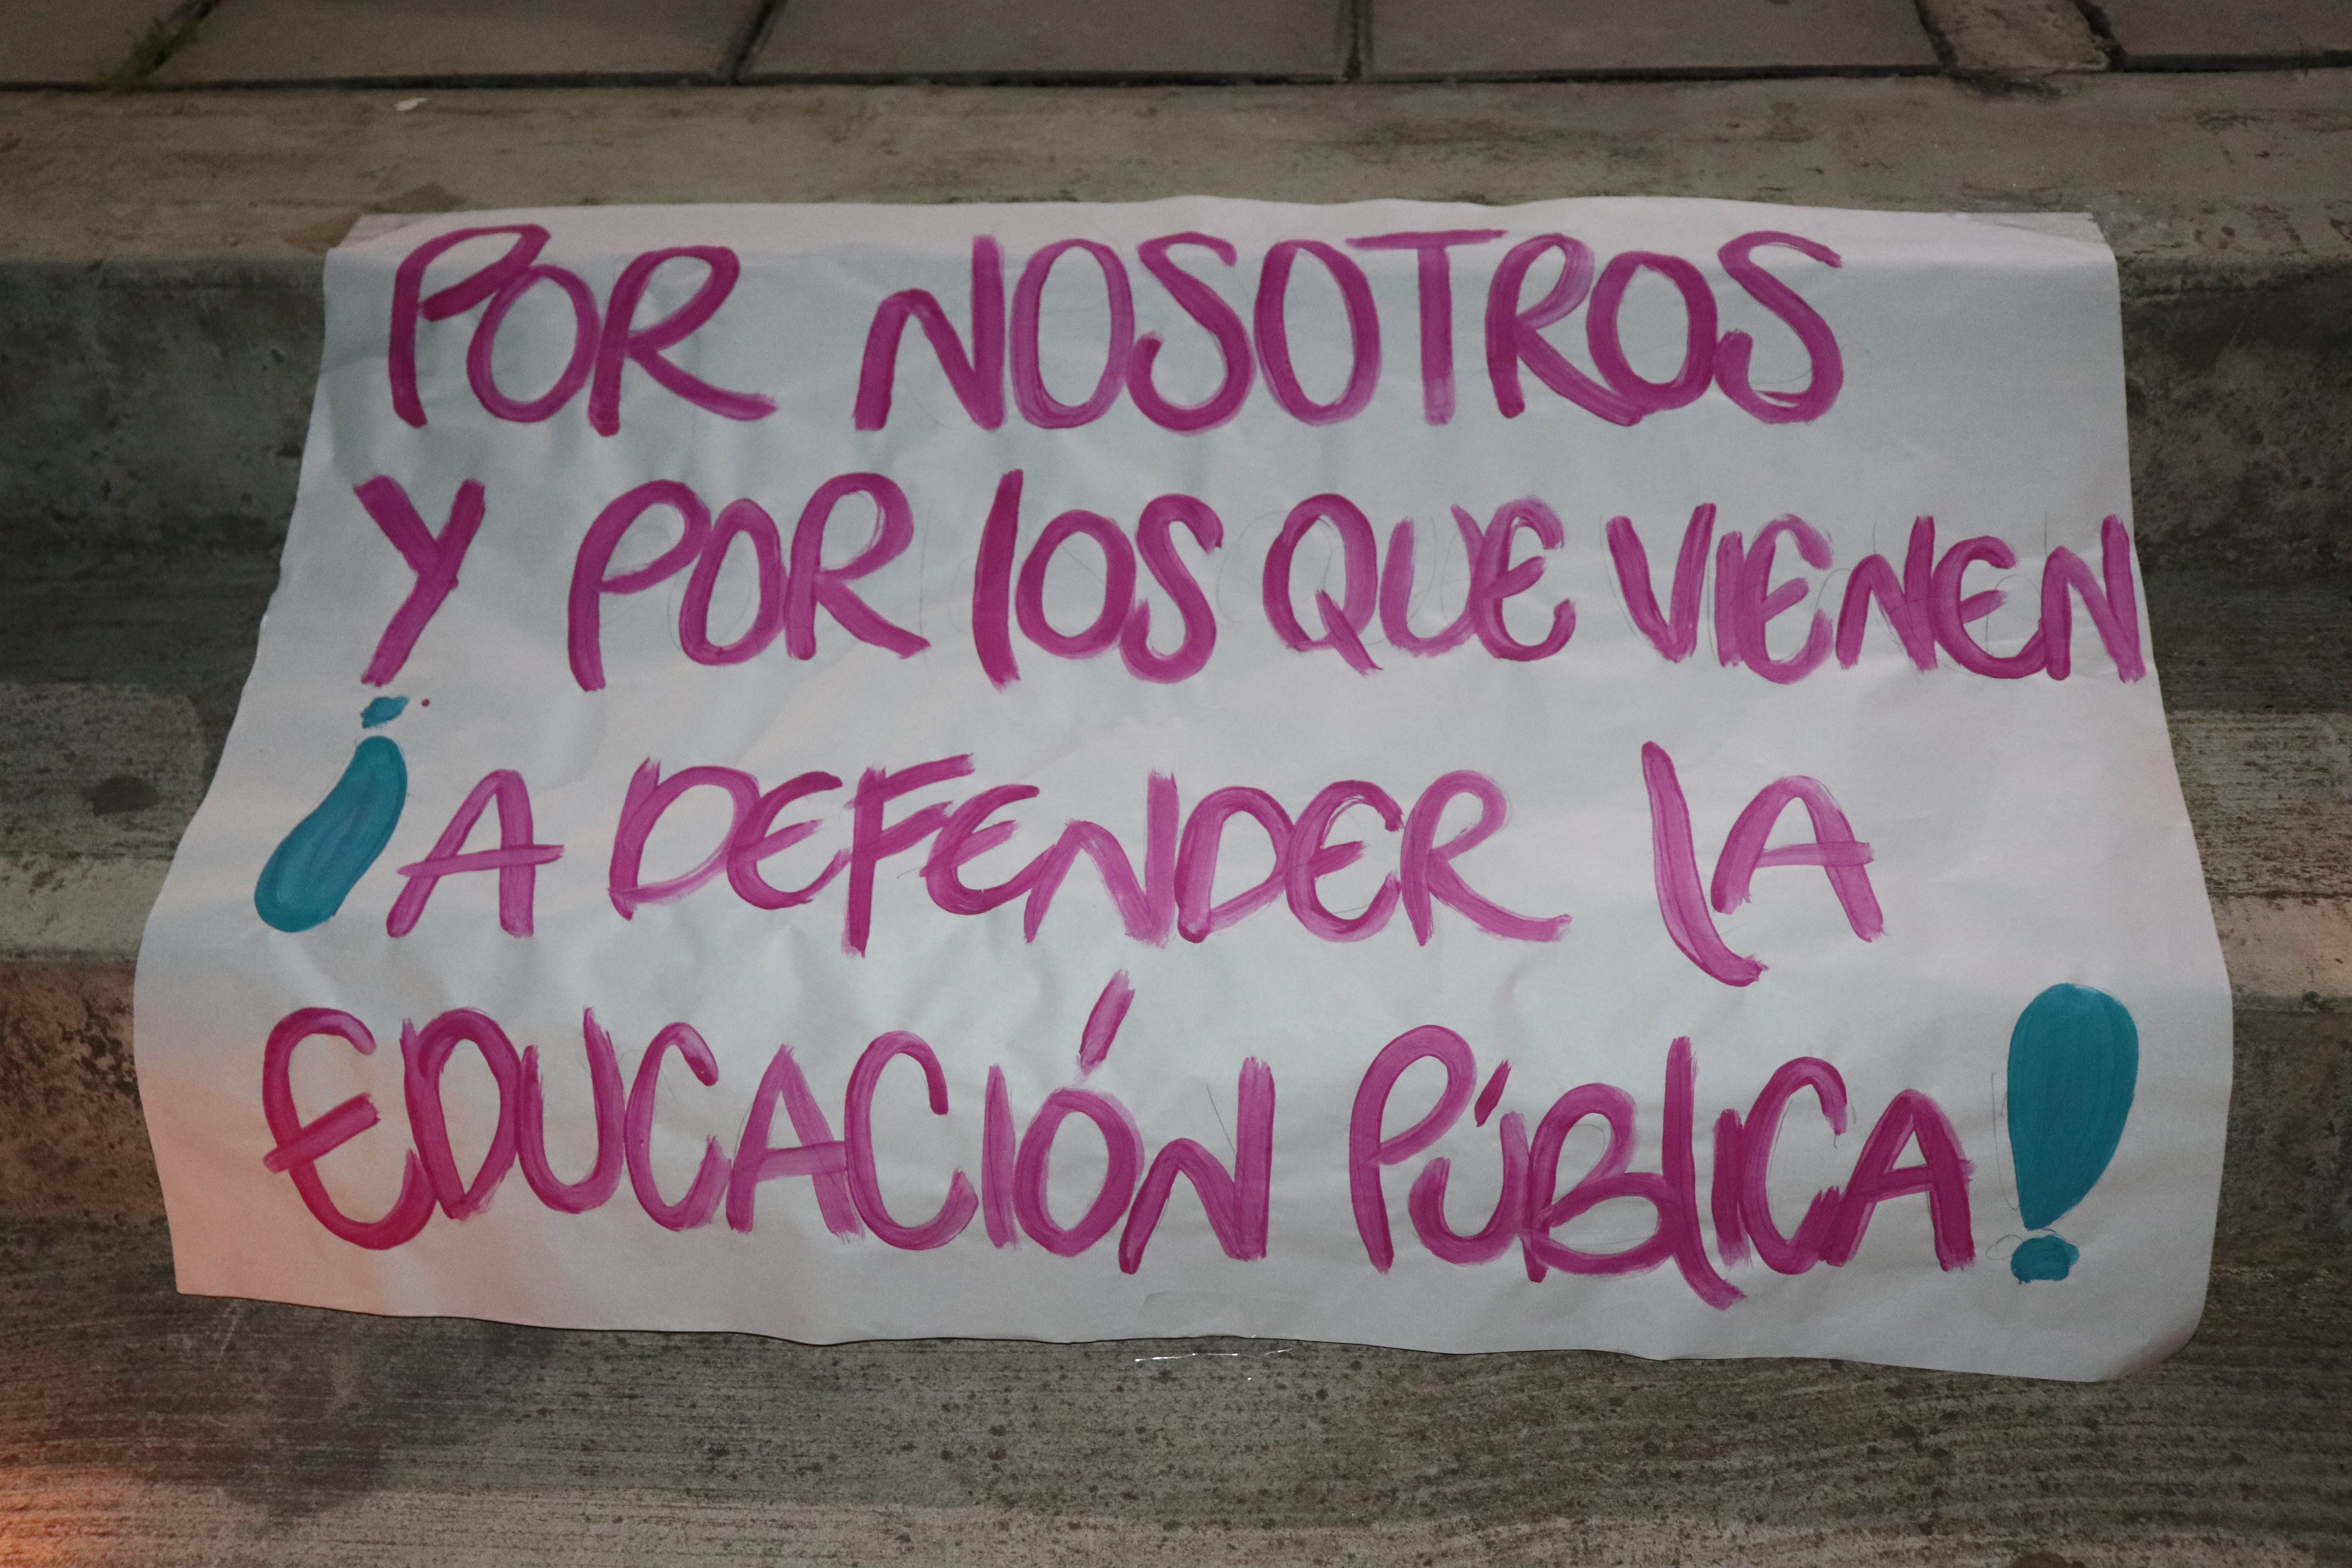 POR NOSOTROS
Y POR LOS QUE VIENEN
¡A DEFENDER LA
EDUCACIÓN PÚBLICA!